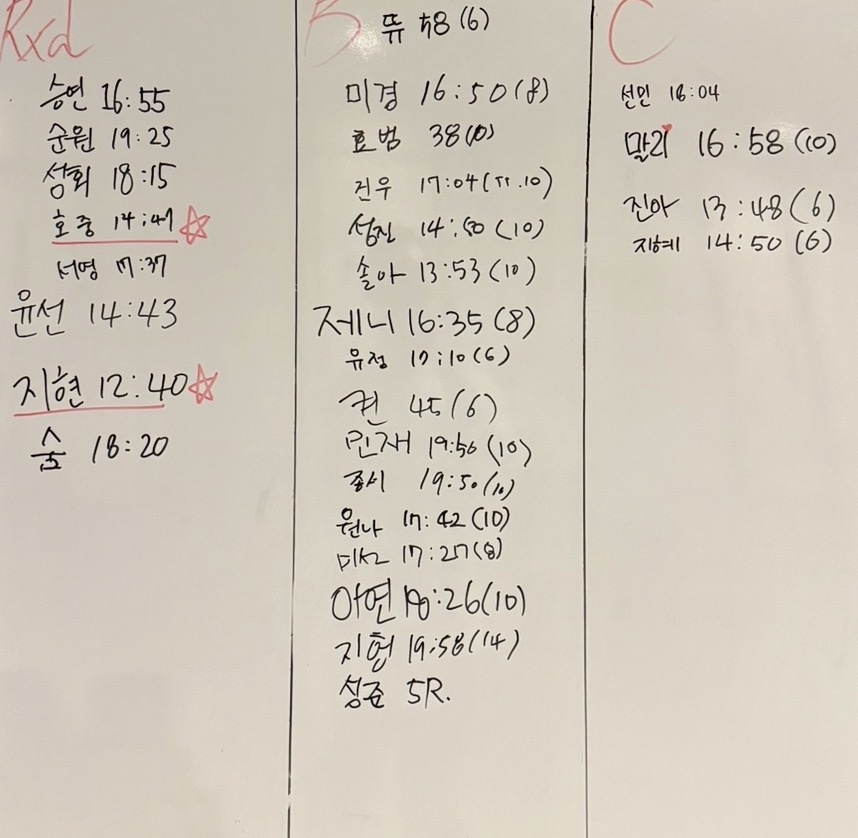 Rxd
승연 16:55
순원 19:25
성회 18:15
호중 14:47
서영 17:37
윤선 14:43
지현 12:40
숨 18:20
B
뜌 48(6)
미경 16:50(8)
효범 38(10)
건우 17:04(TT.10)
성진 14:50(10)
솔아 13:53(10)
제니 16:35(8)
유정 17:10(6)
퀸 45(6)
민재 19:50(10)
종시 19:50(10)
원나 17:42(10)
17:27(8)
아연 18:26(10)
지형 19:58(14)
성준 5R.
C
선민 16:04
말리 16:58(10)
진아 13:48(6)
지혜 14:50(6)